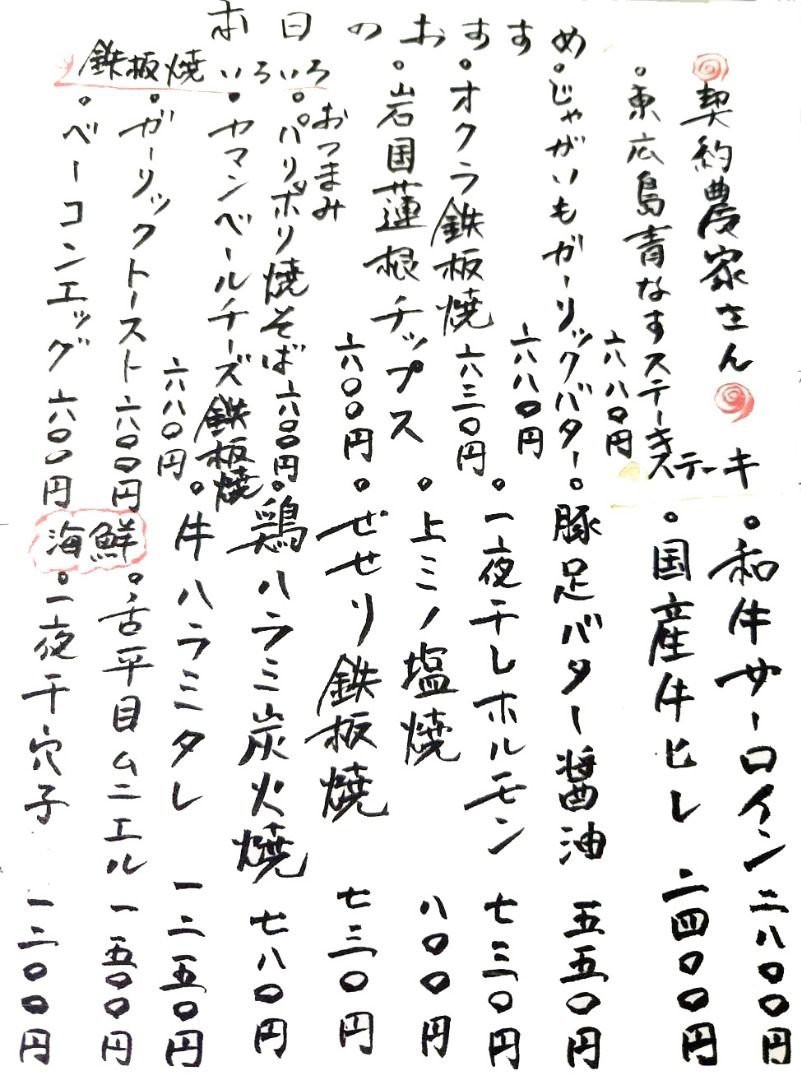 本日のおすすめ
契約農家さん
。東広島青なすステーキ 六八〇円
。じゃがいもガーリックバター 六八〇円
。オクラ鉄板焼 六三〇円
。岩国蓮根チップス 六〇〇円
おつまみいろいろ
。パリポリ焼そば 六〇〇円
。カマンベールチーズ鉄板焼 六八〇円
鉄板焼
。ガーリックトースト 六〇〇円
。ベーコンエッグ 六〇〇円
ステーキ
。和牛サーロイン 二八〇〇円
。国産牛ヒレ 二四〇〇円
。豚足バター醤油 五五〇円
。一夜干しホルモン 七三〇円
。上ミノ塩焼 八〇〇円
。ぜせり鉄板焼 七三〇円
。鶏ハラミ炭火焼 七八〇円
。牛ハラミタレ 一二五〇円
海鮮
。舌平目ムニエル 一五〇〇円
。一夜干穴子 一二〇〇円